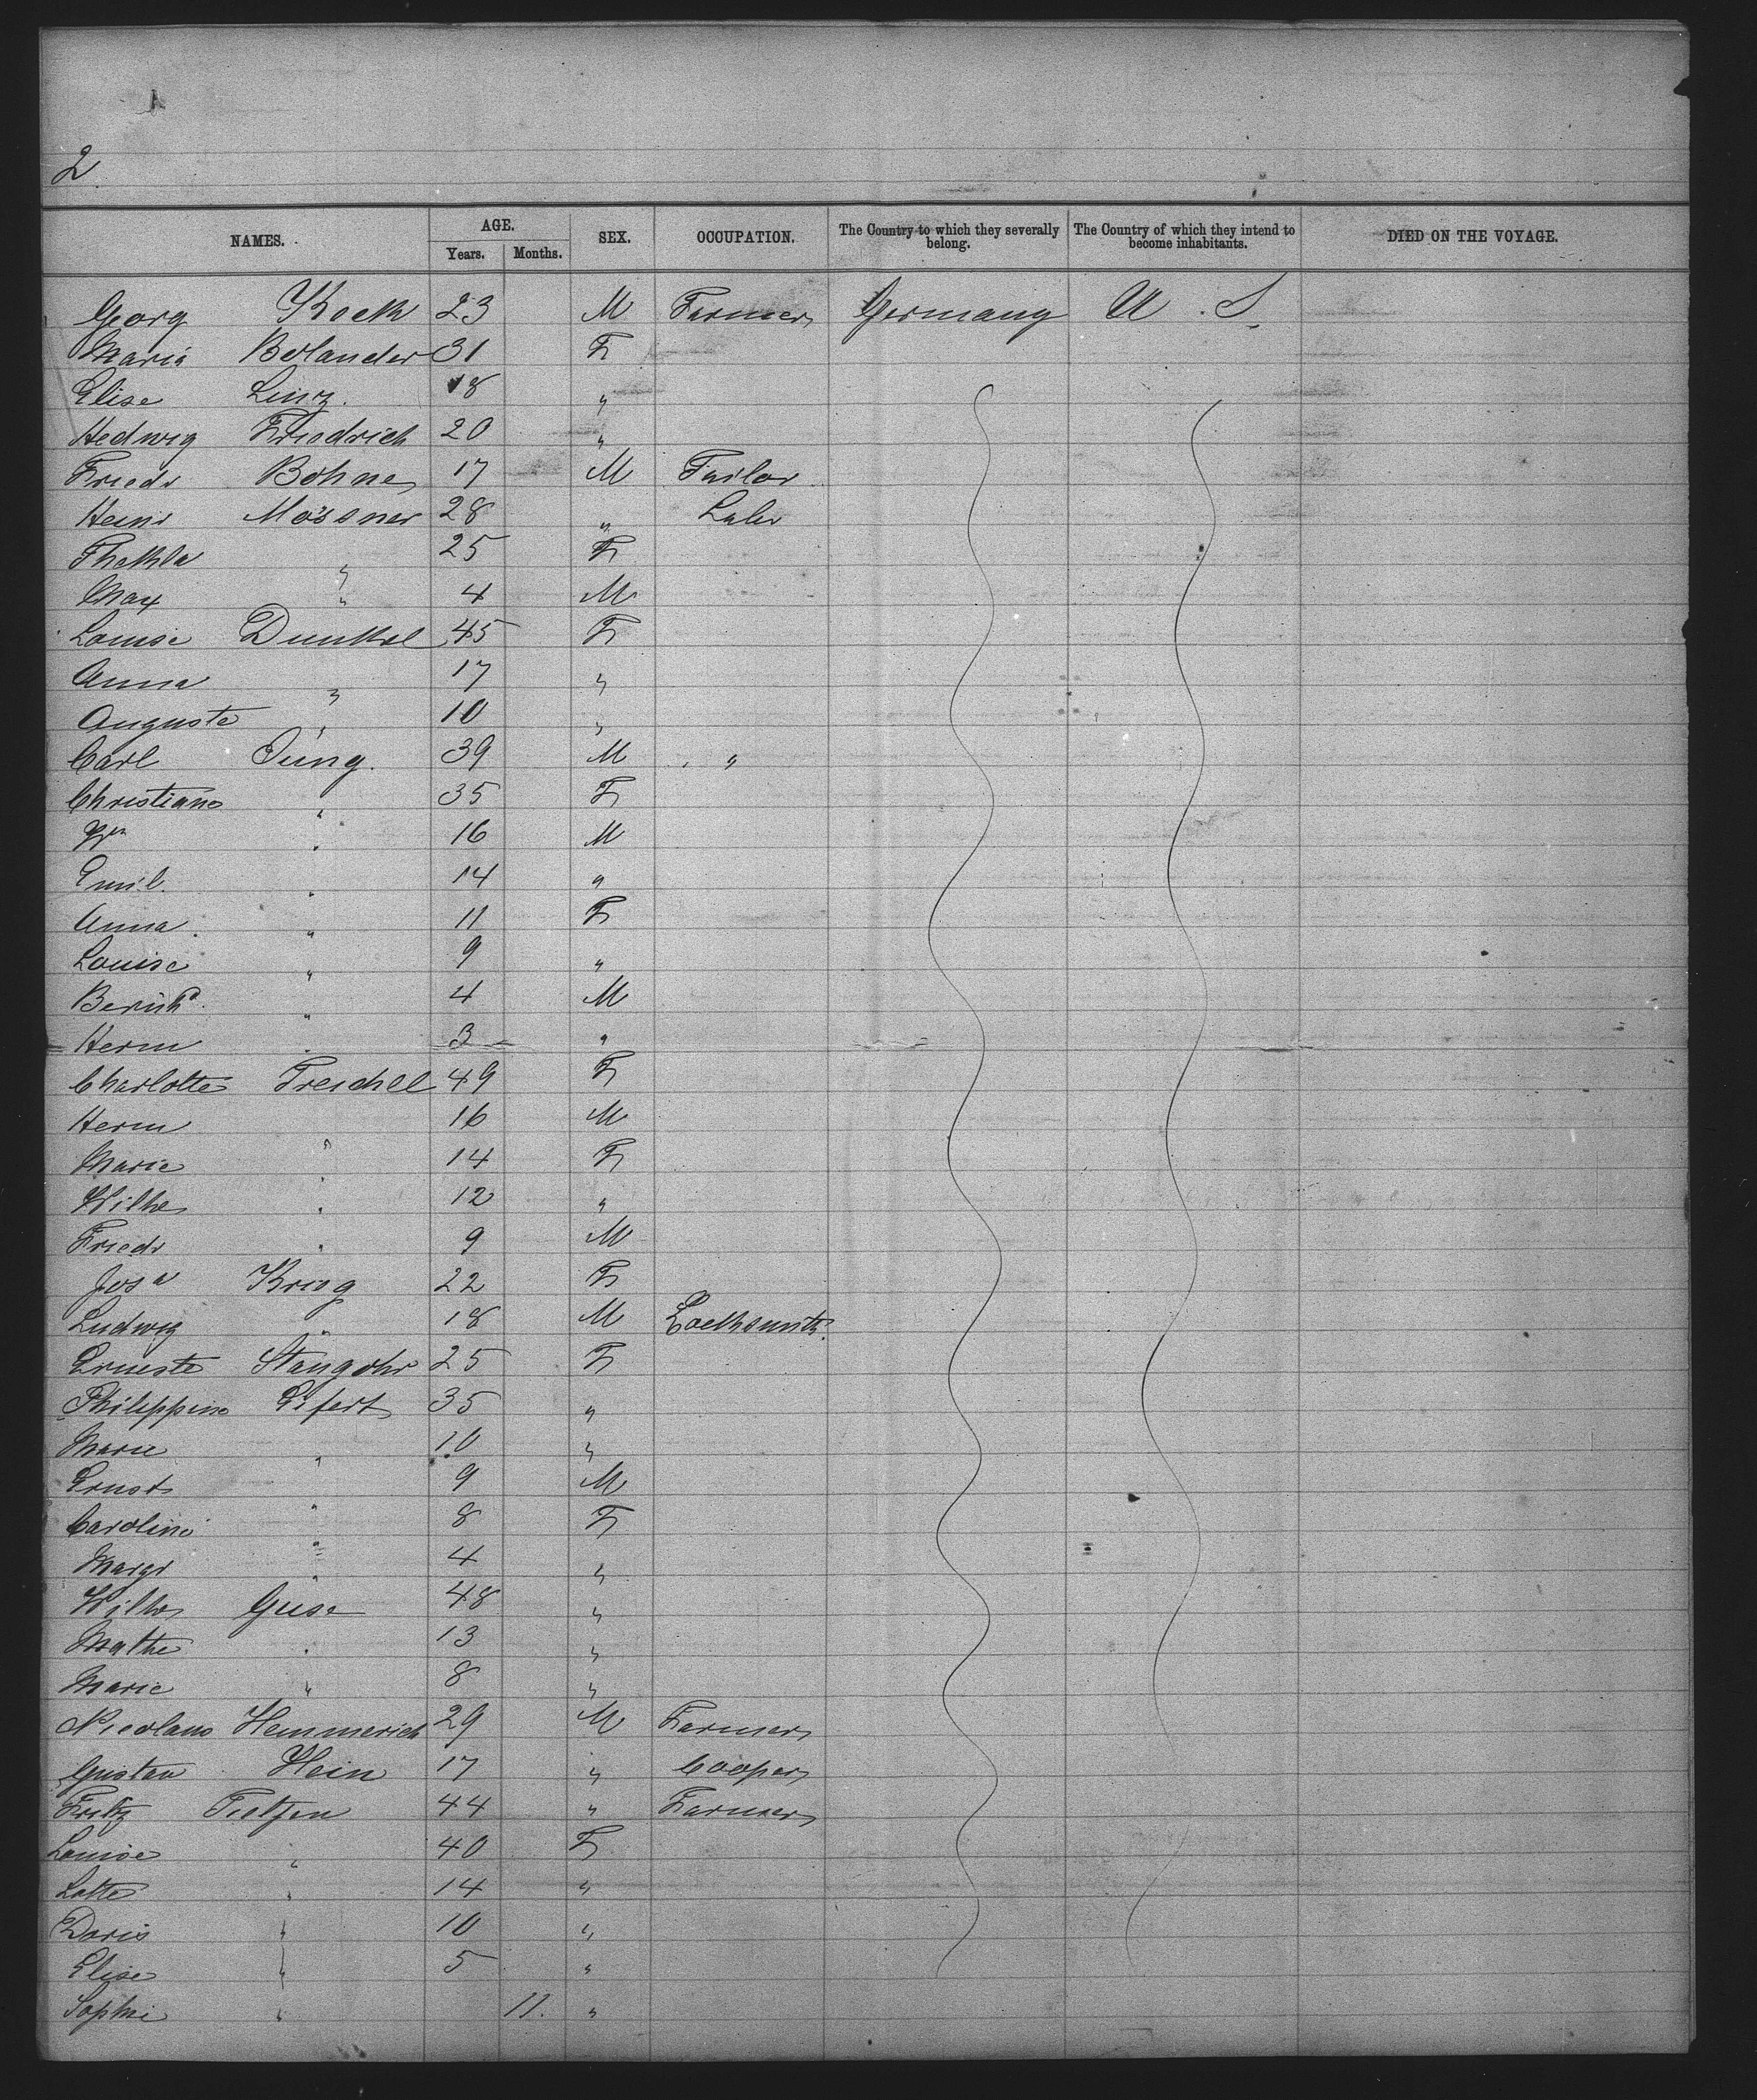 2
NAMES. AGE. SEX. OCCUPATION. The Country to which they severally belong. The Country of which they intend to become inhabitants. DIED ON THE VOYAGE.
Years. Months.
Georg Koch 23 M Farmer Germany U. S.
Maria Bolander 31 F
Elise Linz. 18 "
Hedwig Friedrich 20 "
Friedr Bohne 17 M Tailor
Heinr Mössner 28 " Labr
Thekla " 25 F
Max " 4 M
Louise Dunkel 45 F
Anna " 17 "
Auguste " 10 "
Carl Jung. 39 M "
Christiane " 35 F
Wm " 16 M
Emil. " 14 "
Anna. " 11 F
Louise " 9 "
Bernhd. " 4 M
Herm " 3 "
Charlotte Treichel 49 F
Herm " 16 M
Marie " 14 F
Wilhe " 12 "
Friedr " 9 M
Josa Krieg 22 F
Ludwig " 18 M Locksmith.
Erneste Stangohr 25 F
Philippine Eifert 35 "
Marie " 10 "
Ernst " 9 M
Caroline " 8 F
Margr " 4 "
Wilhe Guse 48 "
Mathe " 13 "
Marie " 8 "
Nicolaus Hemmerich 29 M Farmer
Gustav Hein 17 " Cooper
Fritz Tietjen 44 " Farmer
Louise " 40 F
Lotte " 14 "
Doris " 10 "
Elise " 5 "
Sophie " 11. "